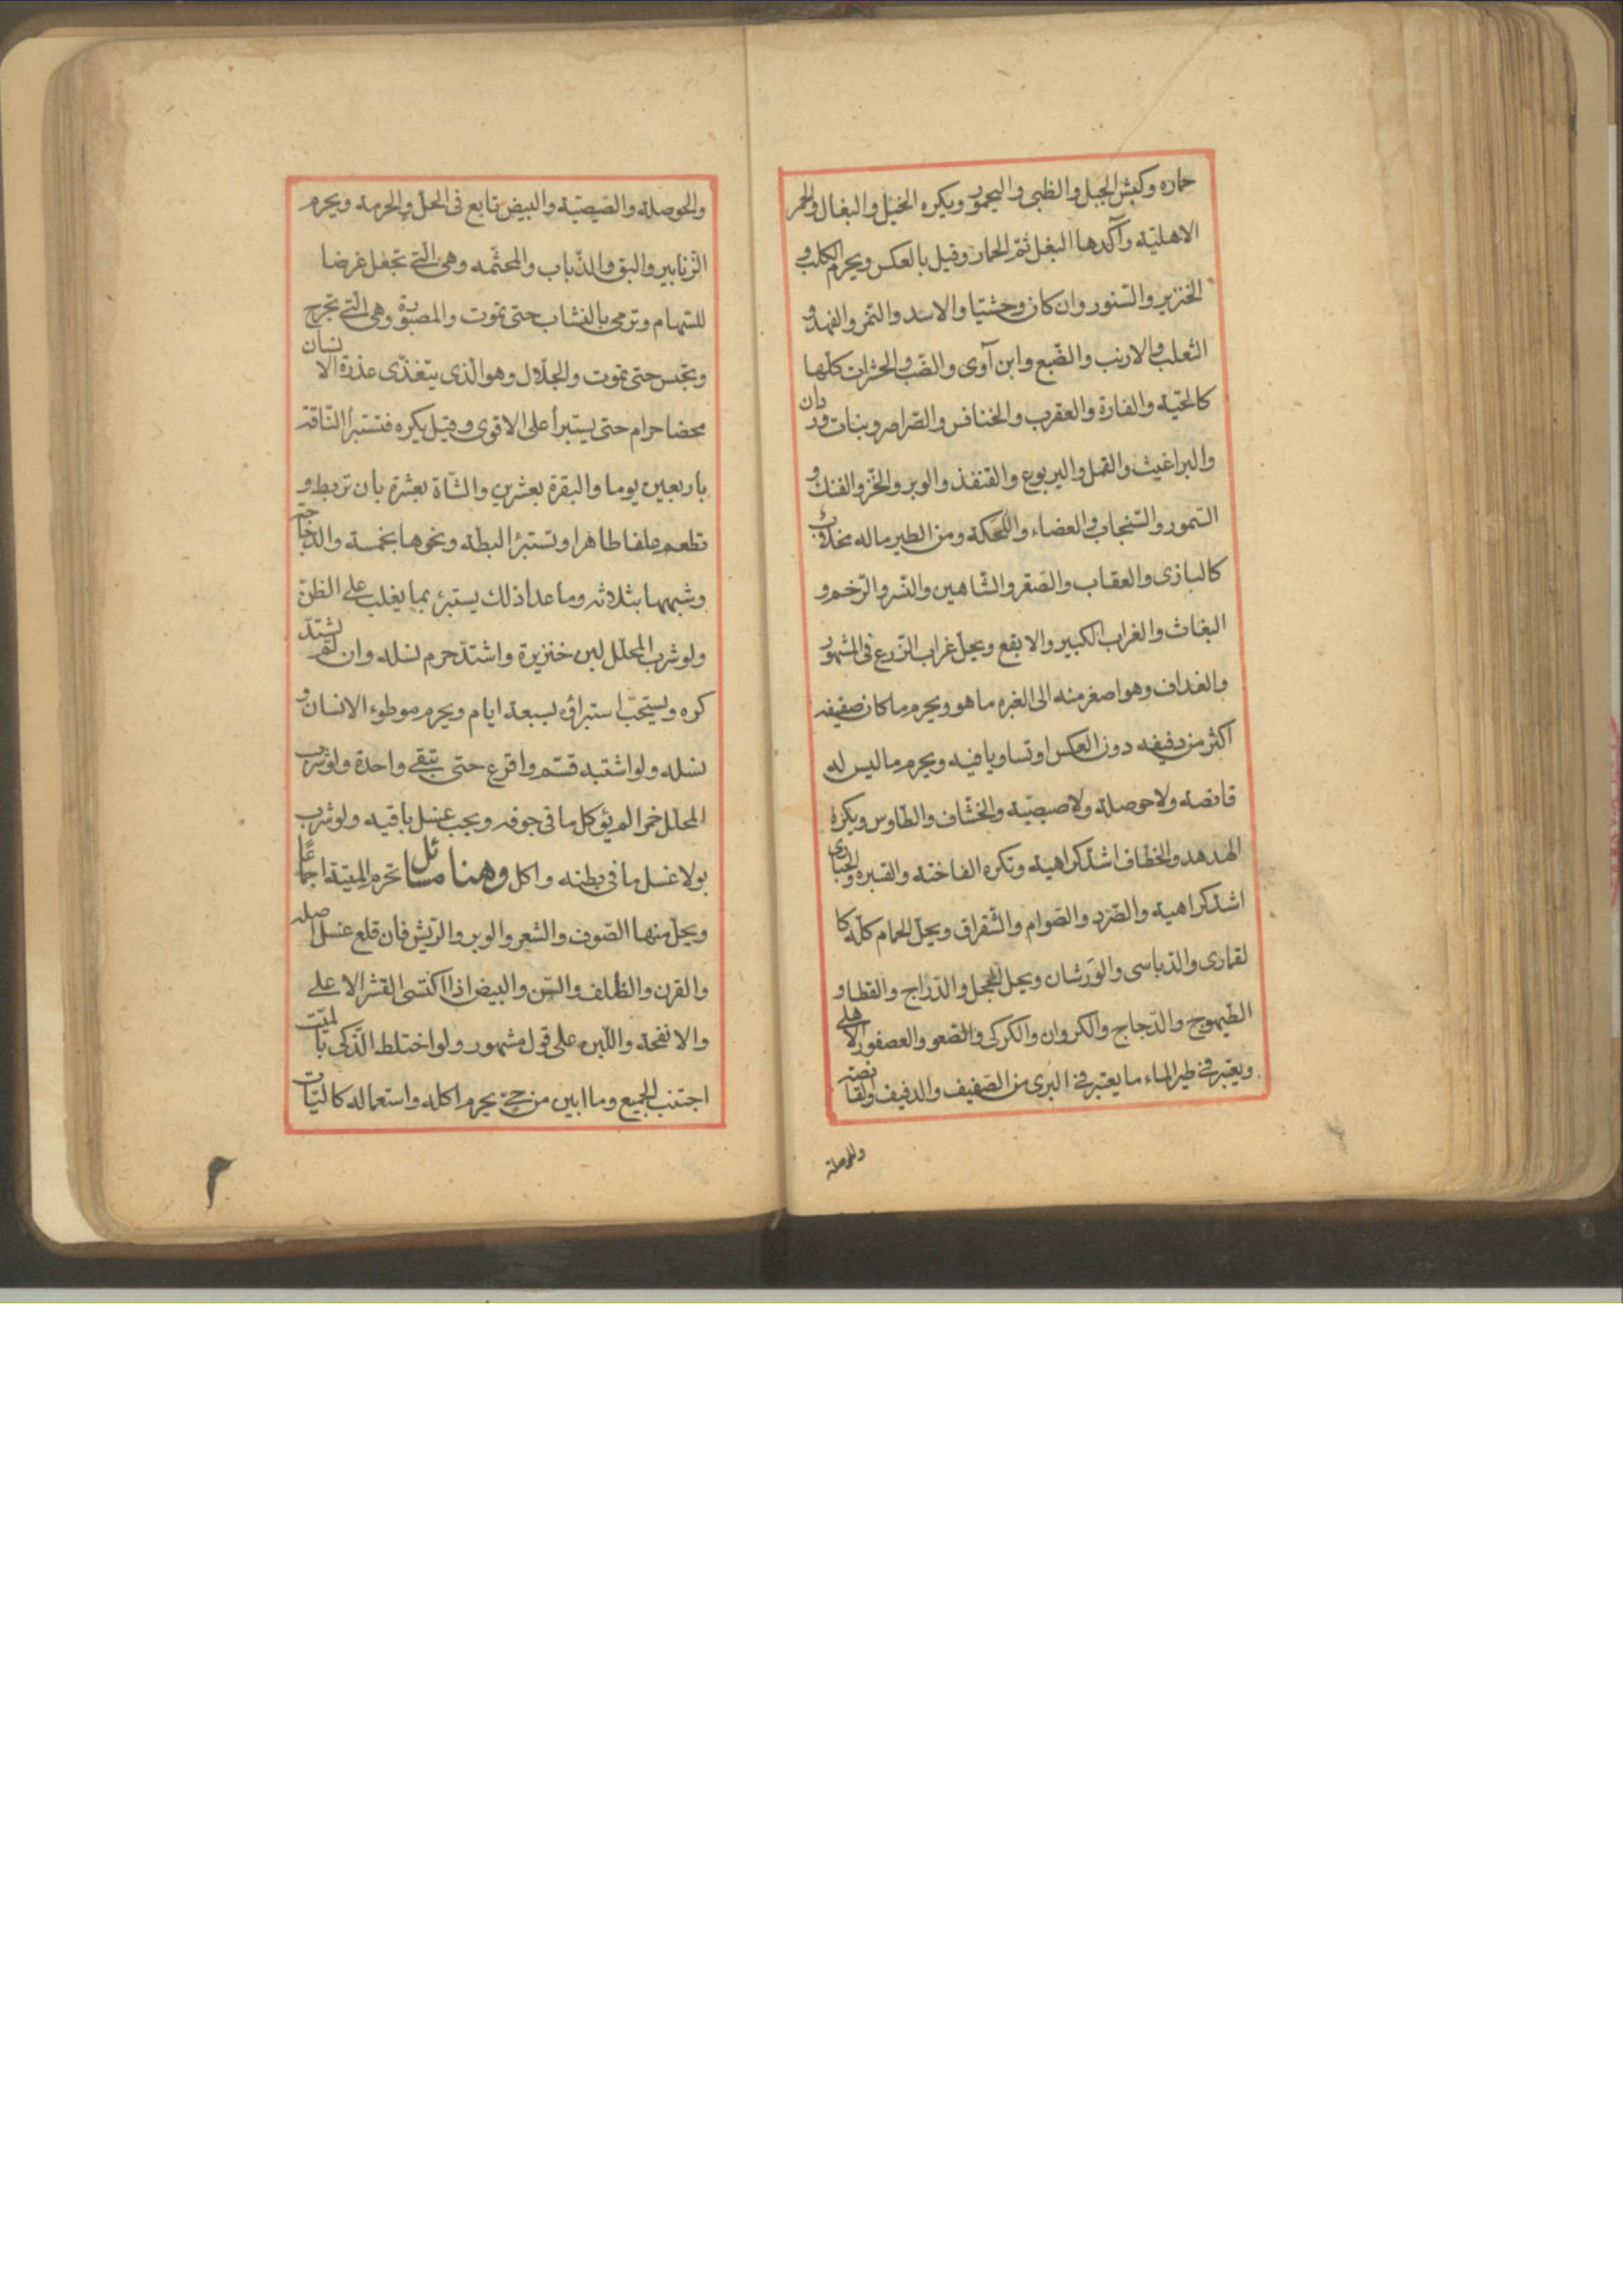 حماره وكبش الجبل والظبي واليحمور ويكره الخيل والبغال والحمر
الاهليّة وآكدها البغل ثمّ الحمار وقيل بالعكس ويحرم الكلب و
الخنزير والسّنور وان كان وحشيّا والاسد والنّمر والفهد و
الثعلب والارنب والضّبع وابن آوى والضّب والحشرات كلّها
كالحيّة والفارة والعقرب والخنافس والصّراصر وبنات وردان
والبراغيث والقمل واليربوع والقنفذ والوبر والخزّ والفنك و
السّمور والسّنجاب والعضاء واللّحكة ومن الطير ماله مخلاب
كالبازى والعقاب والصّقر والشّاهين والنّسر والرّخم و
البغاث والغراب الكبير والابقع ويحلّ غراب الزّرع فى المشهور
والغداف وهو اصغر منه الى الغبره ما هو ويحرم ما كان صفيفه
اكثر من دفيفه دون العكس او تساويا فيه ويحرم ما ليس له
قانصة ولا حوصلة ولا صيصيّة والخشّاف والطّاوس ويكره
الهدهد والخطّاف اشدّ كراهية وتكره الفاختة والقبّره والحبارى
اشدّ كراهية والصّرد والصّوام والشّقراق ويحلّ الحمام كلّه كا
لقمارى والدّباسى والوَرشان ويحلّ الحجل والدّراج والقطا و
الطّيهوج والدّجاج والكروان والكركى والصّعو والعصفور الاهلى
ويعتبر فى طير الماء ما يعتبر فى البرى من الصّفيف والدفيف والقانصة
والحوصلة
والحوصلة والصّيصيّة والبيض تابع فى الحلّ والحرمة ويحرم
الزّنابير والبق والذّباب والمجثّمه وهى الّتى تجعل غرضا
للسّهام وترمى بالنشاب حتى تموت والمصبورة وهى الّتى تجرح
وتحبس حتى تموت والجلّال وهو الّذى يتغذّى عذرة الانسان
محضا حرام حتى يستبرأ على الاقوى وقيل يكره فتستبرأ النّاقة
باربعين يوما والبقرة بعشرين والشّاة بعشرة بان تربط و
تطعم علفا طاهرا وتستبرئ البطّة ونحوها بخمسة والدّجاجة
وشبهها بثلاثه وما عدا ذلك يستبرئ بما يغلب على الظّنّ
ولو شرب المحلّل لبن خنزيرة واشتدّ حرم نسله وان لم يشتدّ
كره ويستحبّ استبراؤه بسبعة ايام ويحرم موطوء الانسان و
نسله ولو اشتبه قسّم واقرع حتى تبقى واحدة ولو شرب
المحلّل خمرا لم يؤكل ما فى جوفه ويجب غسل باقيه ولو شرب
بولا غسل ما فى بطنه واكل وهنا مسائل تحرم الميتة اجماعًا
ويحلّ منها الصّوف والشعر والوبر والرّيش فان قلع غسل اصله
والقرن والظّلف والسّن والبيض اذا اكتسى القشر الاعلى
والانفحة واللّبن على قول مشهور ولو اختلط الذّكى بالميّت
اجتنب الجميع وما ابين من حىّ يحرم اكله واستعماله كاليّات
٣